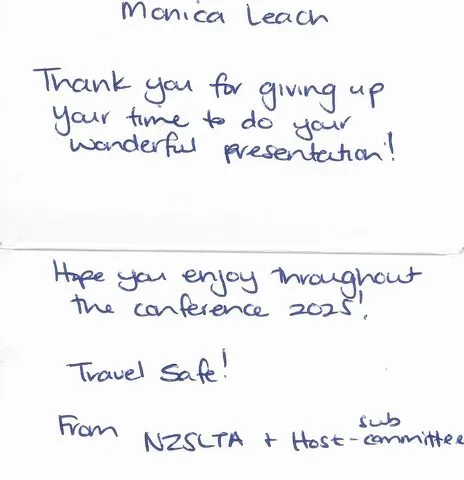 Monica Leach
Thank you for giving up
your time to do your
wonderful presentation!
Hope you enjoy throughout
the conference 2025!
Travel Safe!
sub
From NZSLTA + Host-committee